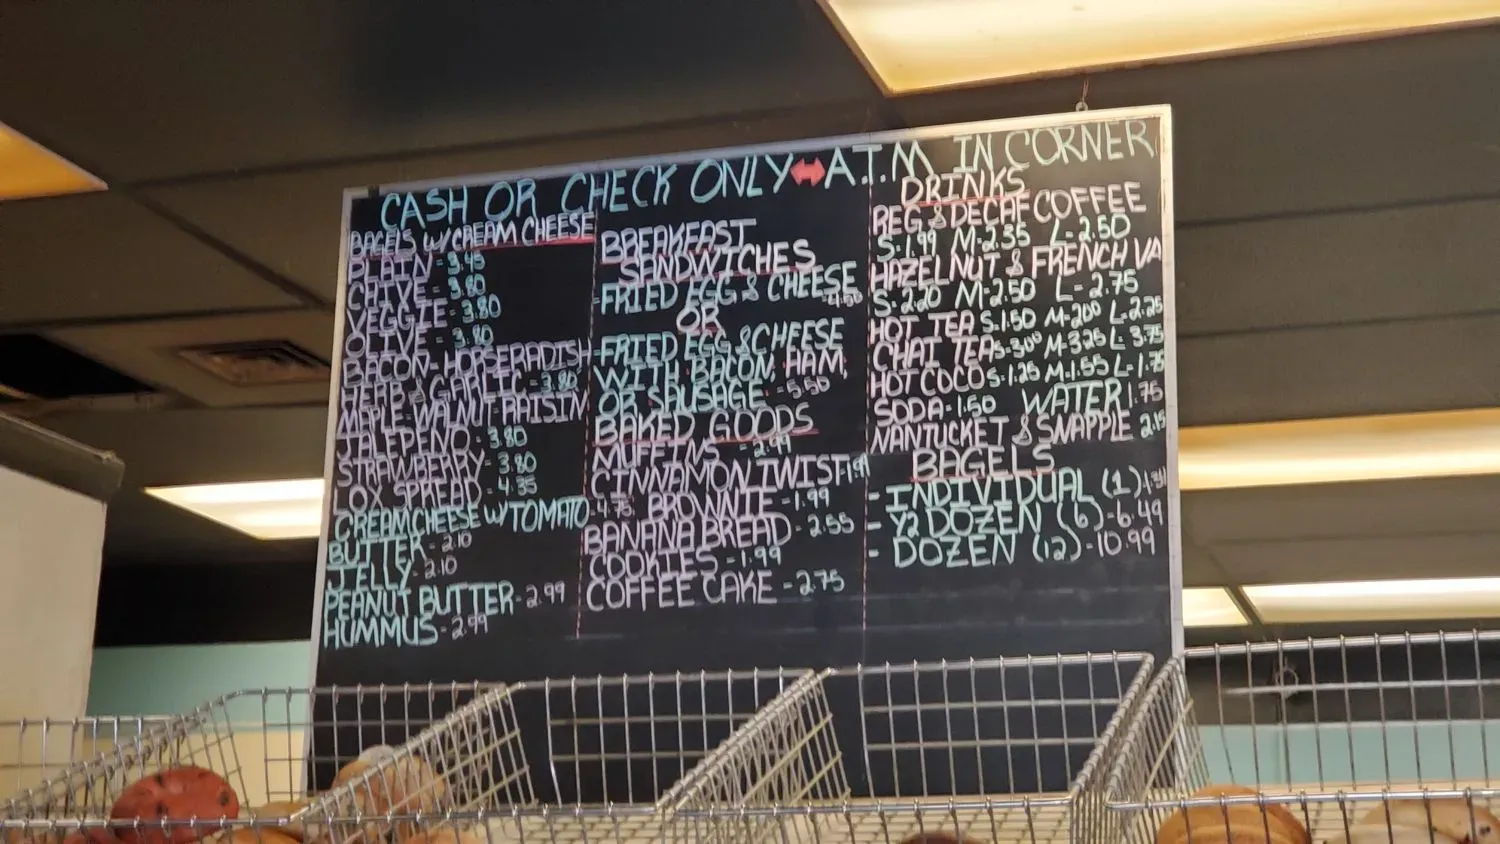 CASH OR CHECK ONLY ↔ A.T.M IN CORNER
BAGELS W/CREAM CHEESE
PLAIN - 3.45
CHIVE - 3.80
VEGGIE - 3.80
OLIVE - 3.80
BACON-HORSERADISH
HERB & GARLIC - 3.80
MAPLE-WALNUT-RAISIN
JALEPENO - 3.80
STRAWBERRY - 3.80
LOX SPREAD - 4.35
CREAM CHEESE W/TOMATO - 4.75
BUTTER - 2.10
JELLY - 2.10
PEANUT BUTTER - 2.99
HUMMUS - 2.99
BREAKFAST
SANDWICHES
-FRIED EGG & CHEESE
-4.50
OR
-FRIED EGG & CHEESE
WITH BACON, HAM,
OR SAUSAGE - 5.50
BAKED GOODS
MUFFINS - 2.99
CINNAMON TWIST
BROWNIE - 1.99
BANANA BREAD - 2.55
COOKIES - 1.99
COFFEE CAKE - 2.75
DRINKS
REG & DECAF COFFEE
S-1.99 M-2.35 L-2.50
HAZELNUT & FRENCH VA
S-2.20 M-2.50 L-2.75
HOT TEA S-1.50 M-2.00 L-2.25
CHAI TEA S-3.00 M-3.25 L-3.75
HOT COCO S-1.25 M-1.55 L-1.75
SODA-1.50 WATER 1.75
NANTUCKET & SNAPPLE 2.15
BAGELS
- INDIVIDUAL (1)
- 1/2 DOZEN (6)-6.49
- DOZEN (12)-10.99